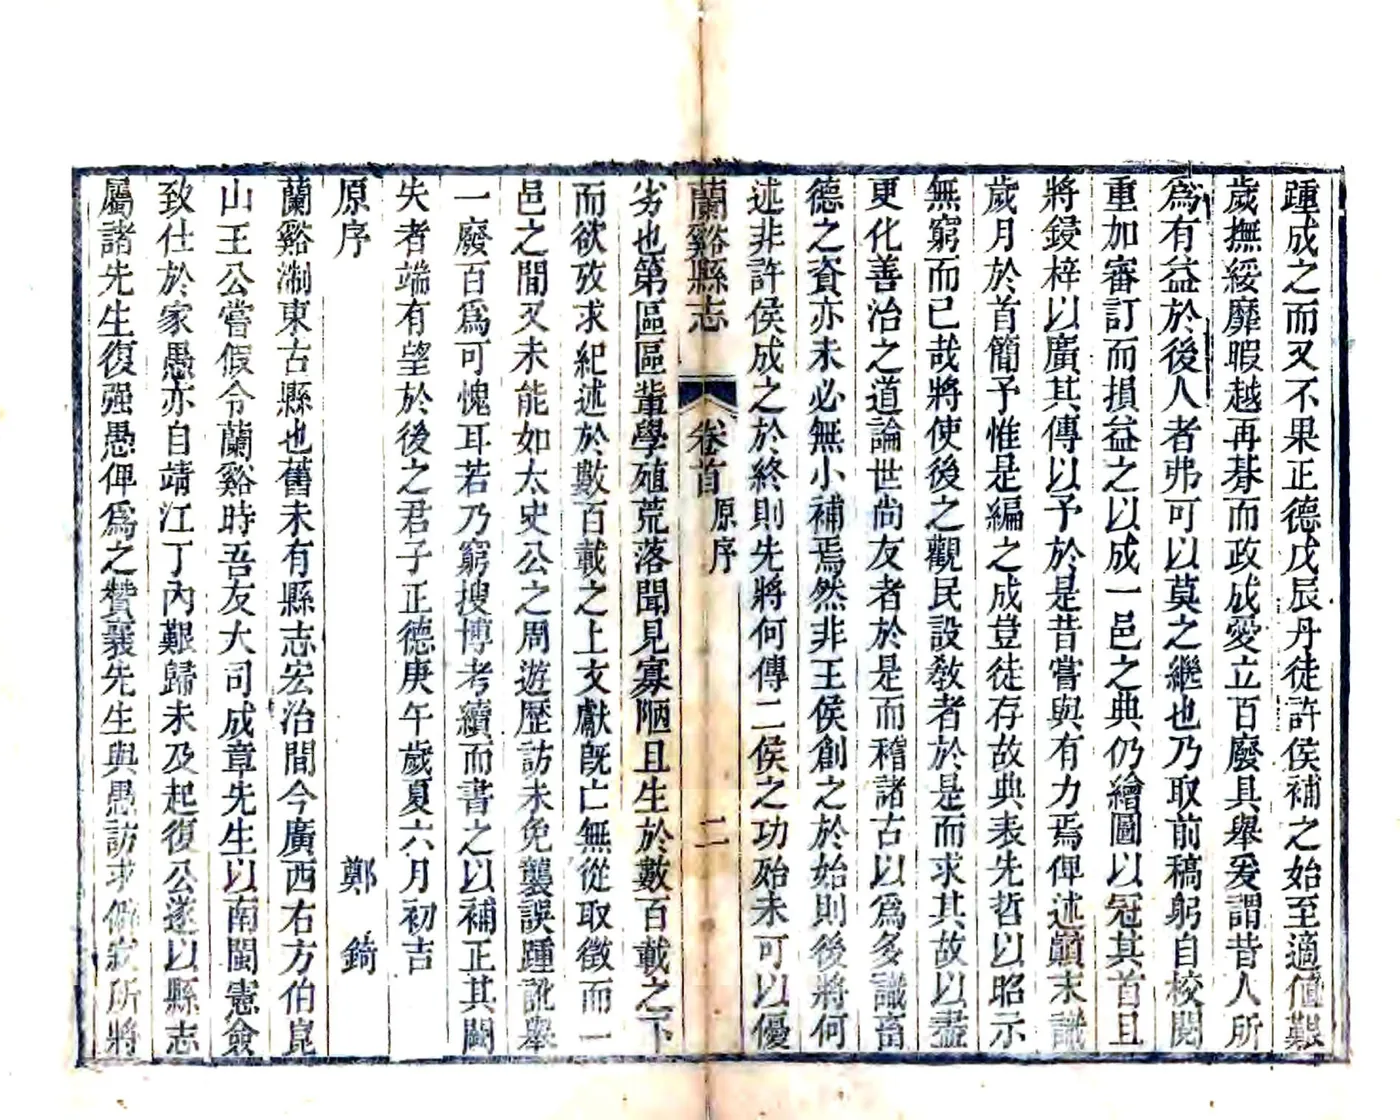 踵成之而又不果正德戊辰丹徒許侯補之始至適值艱
歲撫綏靡暇越再朞而政成愛立百廢具舉爰謂昔人所
爲有益於後人者弗可以莫之繼也乃取前稿躬自校閱
重加審訂而損益之以成一邑之典仍繪圖以冠其首且
將鋟梓以廣其傳以予於是昔嘗與有力焉俾述顛末識
歲月於首簡予惟是編之成豈徒存故典表先哲以昭示
無窮而已哉將使後之觀民設敎者於是而求其故以盡
更化善治之道論世尙友者於是而稽諸古以爲多識畜
德之資亦未必無小補焉然非王侯創之於始則後將何
述非許侯成之於終則先將何傳二侯之功殆未可以優
蘭谿縣志 卷首 原序 二
劣也第區區輩學殖荒落聞見寡陋且生於數百載之下
而欲攷求紀述於數百載之上文獻旣亡無從取徵而一
邑之間又未能如太史公之周遊歷訪未免襲誤踵訛舉
一廢百爲可愧耳若乃窮搜博考續而書之以補正其闕
失者端有望於後之君子正德庚午歲夏六月初吉
原序 鄭錡
蘭谿淛東古縣也舊未有縣志宏治間今廣西右方伯崑
山王公嘗假令蘭谿時吾友大司成章先生以南閩憲僉
致仕於家愚亦自靖江丁內艱歸未及起復公遂以縣志
屬諸先生復强愚俾爲之贊襄先生與愚訪求僻寂所將